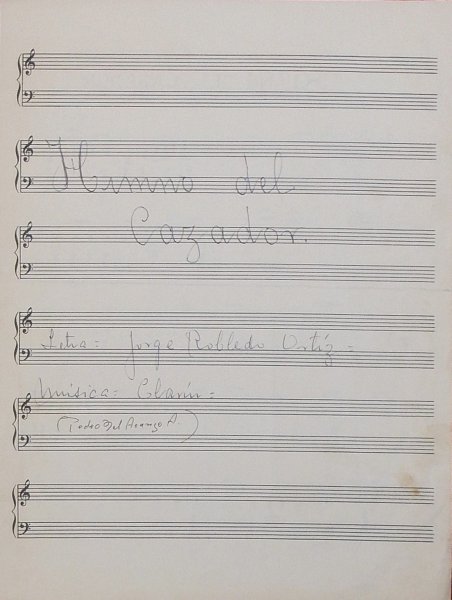 Himno del
Cazador.
Letra = Jorge Robledo Ortíz =
Música = Clarín =
(Pedro Del